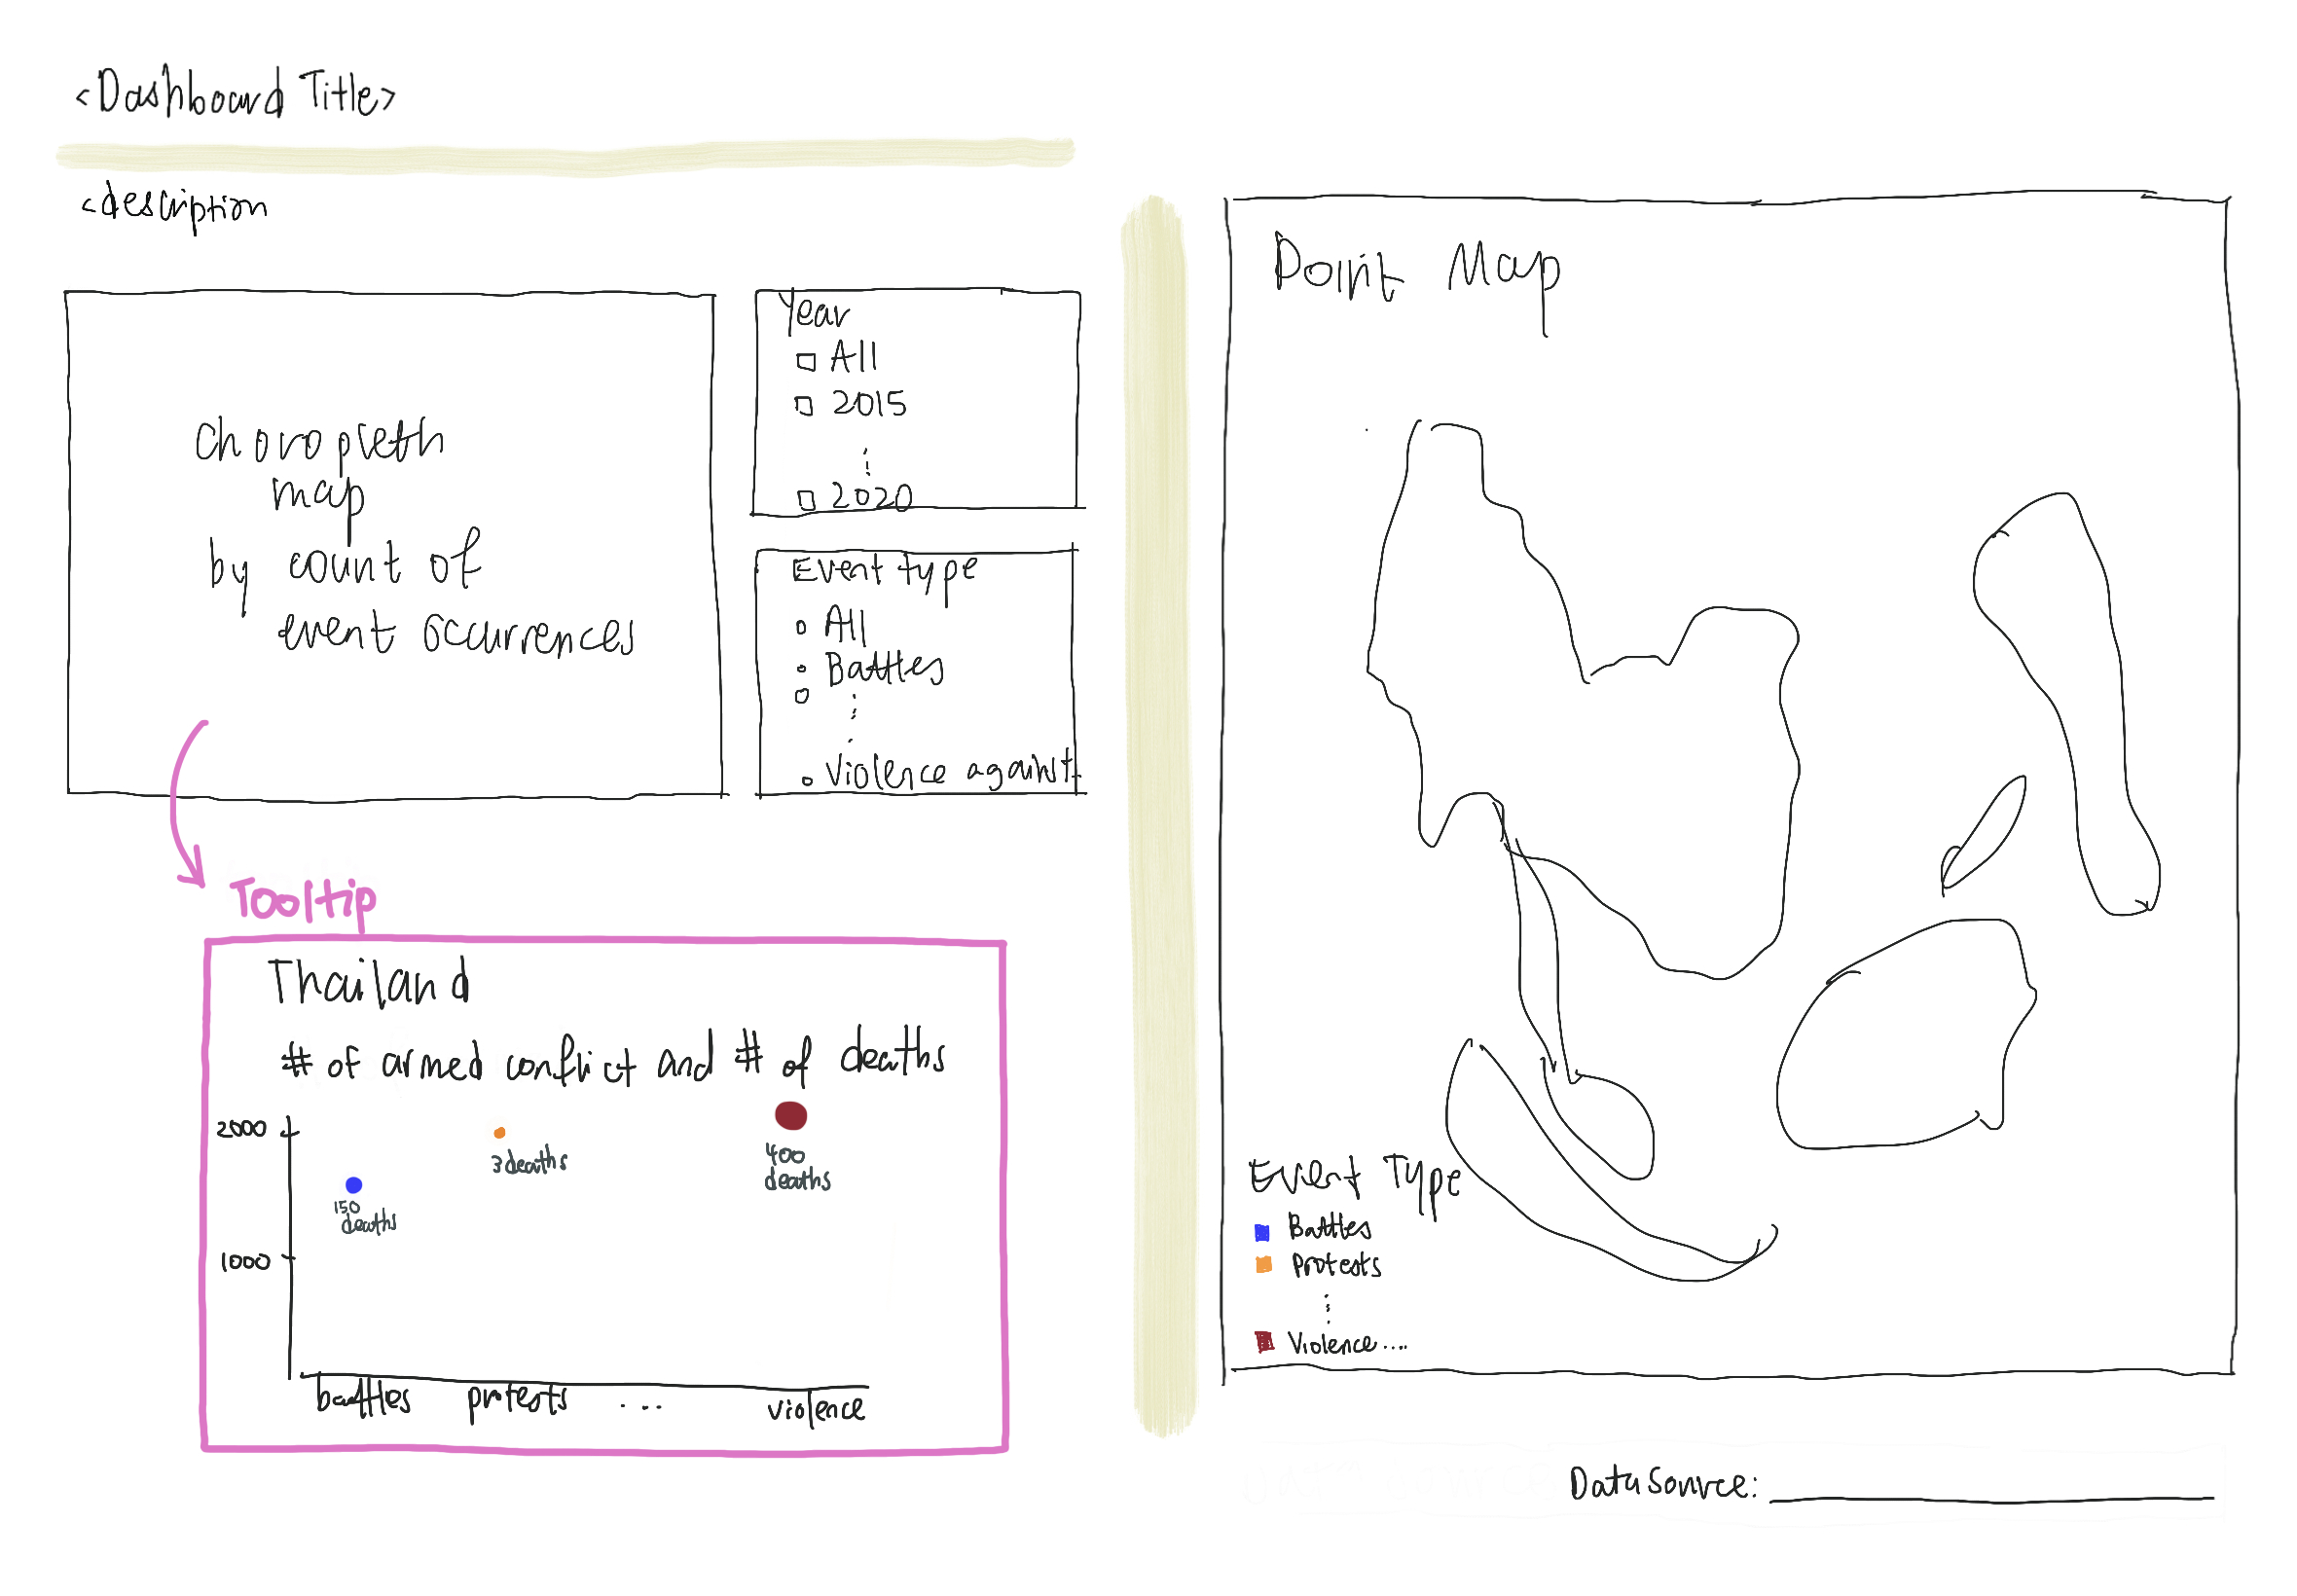 <Dashboard Title>
<description
Choropleth
map
by count of
event occurrences
Year
All
2015
2020
Event type
All
Battles
Violence against
Tooltip
Thailand
# of armed conflict and # of deaths
2000
1000
150
deaths
3 deaths
400
deaths
battles protests ... violence
Point Map
Event Type
Battles
Protests
Violence....
Data Source: